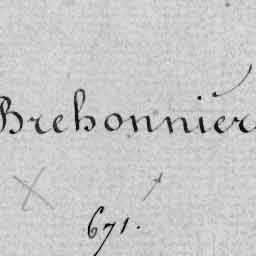 Brehonnièr
671.